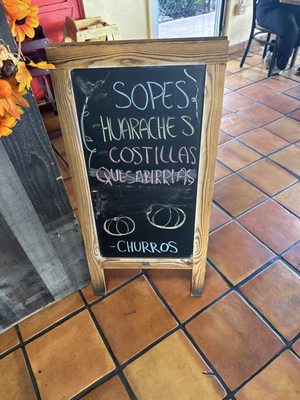 SOPES
HUARACHES
COSTILLAS
QUESABIRRIAS
-CHURROS